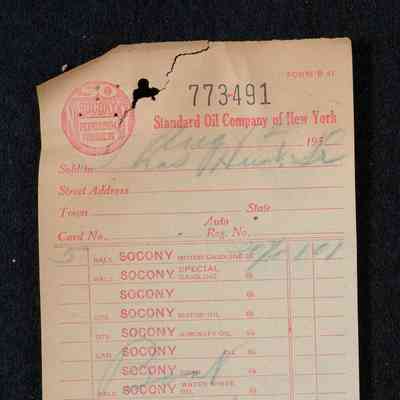 FORM B 41
SOCONY
PETROLEUM
PRODUCTS
773491
Standard Oil Company of New York
Aug 193
Sold to
Street Address
Town State
Card No. Auto Reg. No.
5 GALS. SOCONY MOTOR GASOLINE @ 1 01
GALS. SOCONY SPECIAL GASOLINE @
SOCONY @
QTS. SOCONY MOTOR OIL @
QTS. SOCONY AIRCRAFT OIL @
CAN SOCONY @
SOCONY @
GALS. SOCONY WATER WHITE OIL @